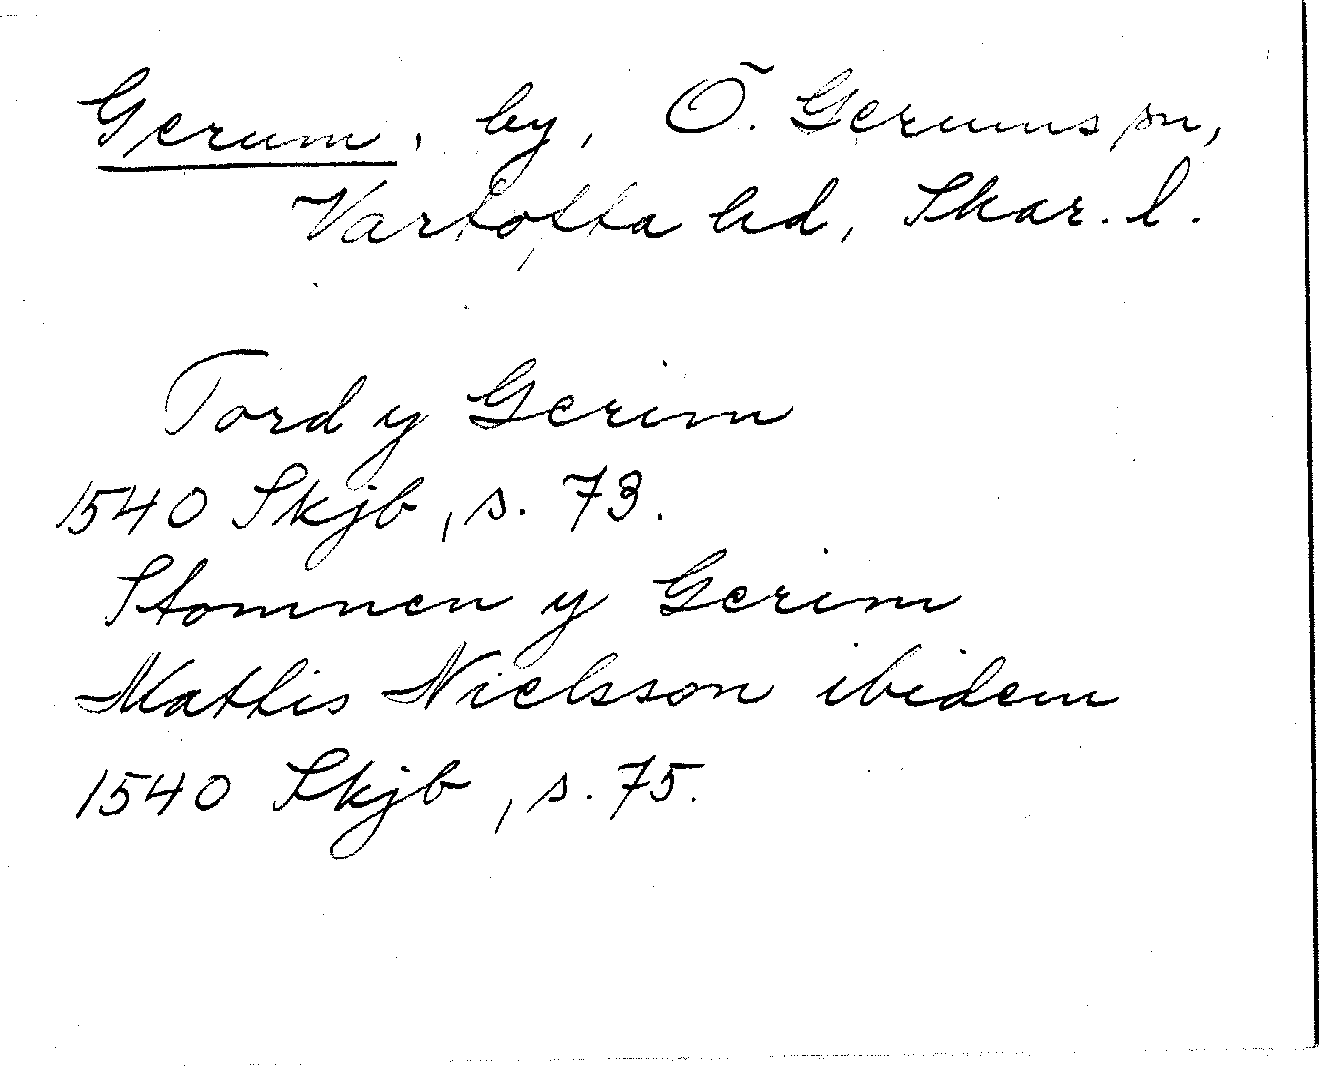 Gerum, by, Ö. Gerums sn,
Vartofta hd, Skar. l.
Tord y Gerim
1540 Skjb, s. 73.
Stomnen y Gerim
Mathis Nielsson ibidem
1540 Skjb, s. 75.